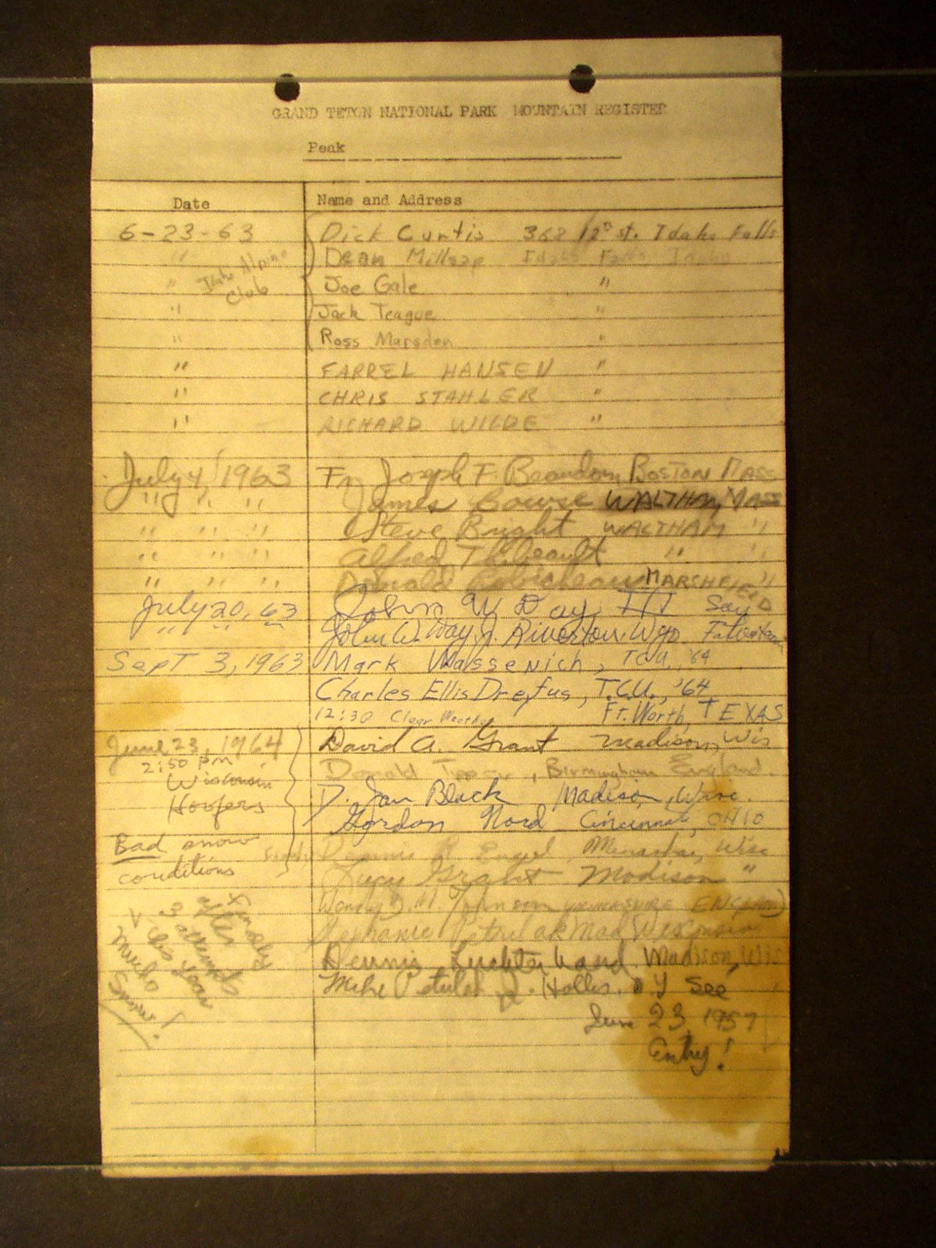 GRAND TETON NATIONAL PARK MOUNTAIN REGISTER
Peak
Date Name and Address
6-23-63 Dick Curtis 368 12th st. Idaho Falls
" Dean Millsap Idaho Falls Idaho
Idaho Alpine Club
" Joe Gale "
" Jack Teague "
" Ross Marsden "
" FARREL HANSEN "
" CHRIS STAHLER "
" RICHARD WILDE "
July 4, 1963 Fr. Joseph F. Beaudoin, BOSTON MASS
" " " James WALTHAM, MASS
" " " Steve Bright WALTHAM "
" " " Alfred Thibeault " "
" " " Donald Robicheau MARSHFIELD "
July 20, 63 John W. Day,
" " " John W. Day, Jr. Riverton, Wyo.
Sept 3, 1963 Mark Wassenich, TCU, '64
Charles Ellis Dreyfus, T.C.U., '64
12:30 Clear Weather Ft. Worth, TEXAS
June 23, 1964 David A. Grant Madison, Wis
2:50 pm Donald , Birmingham England.
Wisconsin
Hoofers D. Jan Black Madison, Wisc.
Gordon Nord Cincinnati, OHIO
Bad snow
conditions Dennis R. Engel, Menasha, Wisc
Lucy Grant Madison "
Wendy Johnson ENGLAND)
Stephanie Petrulak Mad Wisconsin
Dennis Madison, Wis
Mike Hollis. I See
June 23, 1957
Entry!
Finally
after
3 attempts
this year
Much
Snow!